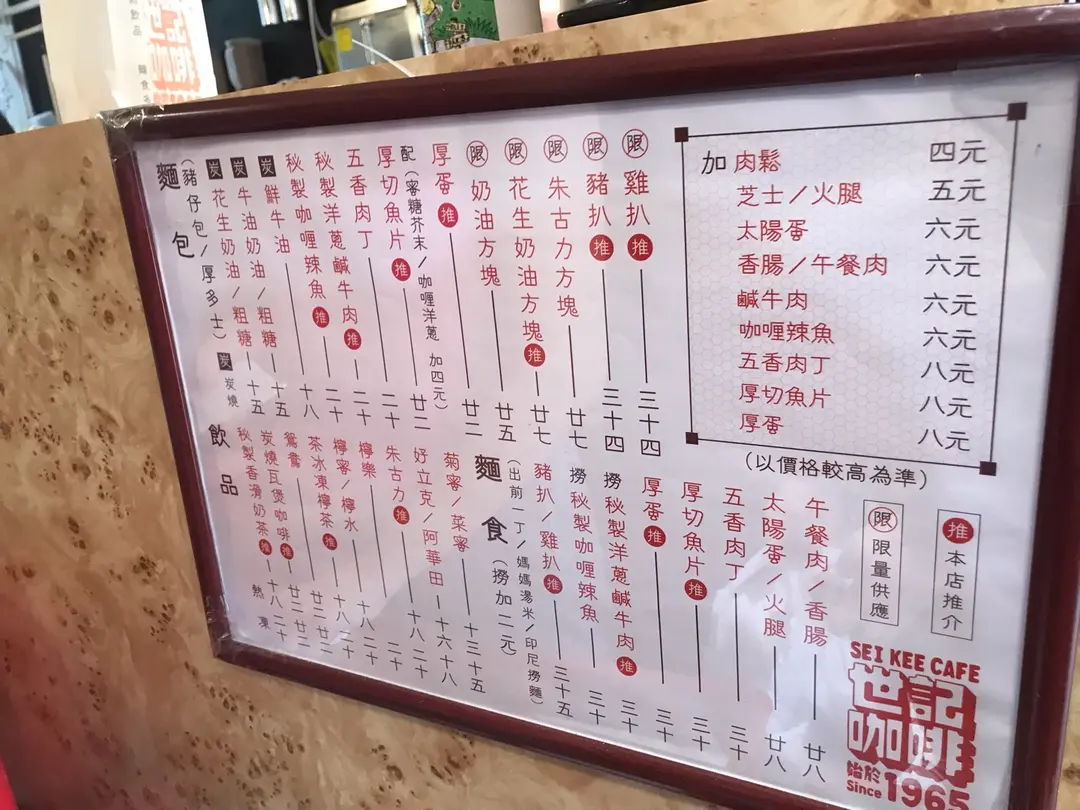 世記
咖啡
麵包
(豬仔包/厚多士) 炭 炭燒
炭 花生奶油/粗糖 十五
炭 牛油奶油/粗糖 十五
炭 鮮牛油 十八
秘製咖喱辣魚 推 二十
秘製洋蔥鹹牛肉 推 二十
五香肉丁 二十
厚切魚片 推 廿二
配(蜜糖芥末/咖喱洋蔥 加四元)
厚蛋 推 廿二
限 奶油方塊 廿五
限 花生奶油方塊 推 廿七
限 朱古力方塊 廿七
限 豬扒 推 三十四
限 雞扒 推 三十四
加 肉鬆 四元
芝士/火腿 五元
太陽蛋 六元
香腸/午餐肉 六元
鹹牛肉 六元
咖喱辣魚 六元
五香肉丁 八元
厚切魚片 八元
厚蛋 八元
(以價格較高為準)
飲品
熱 凍
秘製香滑奶茶 推 十八 二十
炭燒瓦煲咖啡 推 廿二 廿二
鴛鴦 廿二 廿二
茶冰凍檸茶 推
檸蜜/檸水 十八 二十
檸樂 十八 二十
朱古力 推 二十
好立克/阿華田 十六 十八
菊蜜/菜蜜 十三 十五
麵食
(出前一丁/媽媽湯米/印尼撈麵)
(撈加二元)
豬扒/雞扒 推 三十五
撈 秘製咖喱辣魚 三十
撈 秘製洋蔥鹹牛肉 推 三十
厚蛋 推 三十
厚切魚片 推 三十
五香肉丁 三十
太陽蛋/火腿 廿八
午餐肉/香腸 廿八
限 限量供應
推 本店推介
SEI KEE CAFE
世記
咖啡
始於
Since 1965